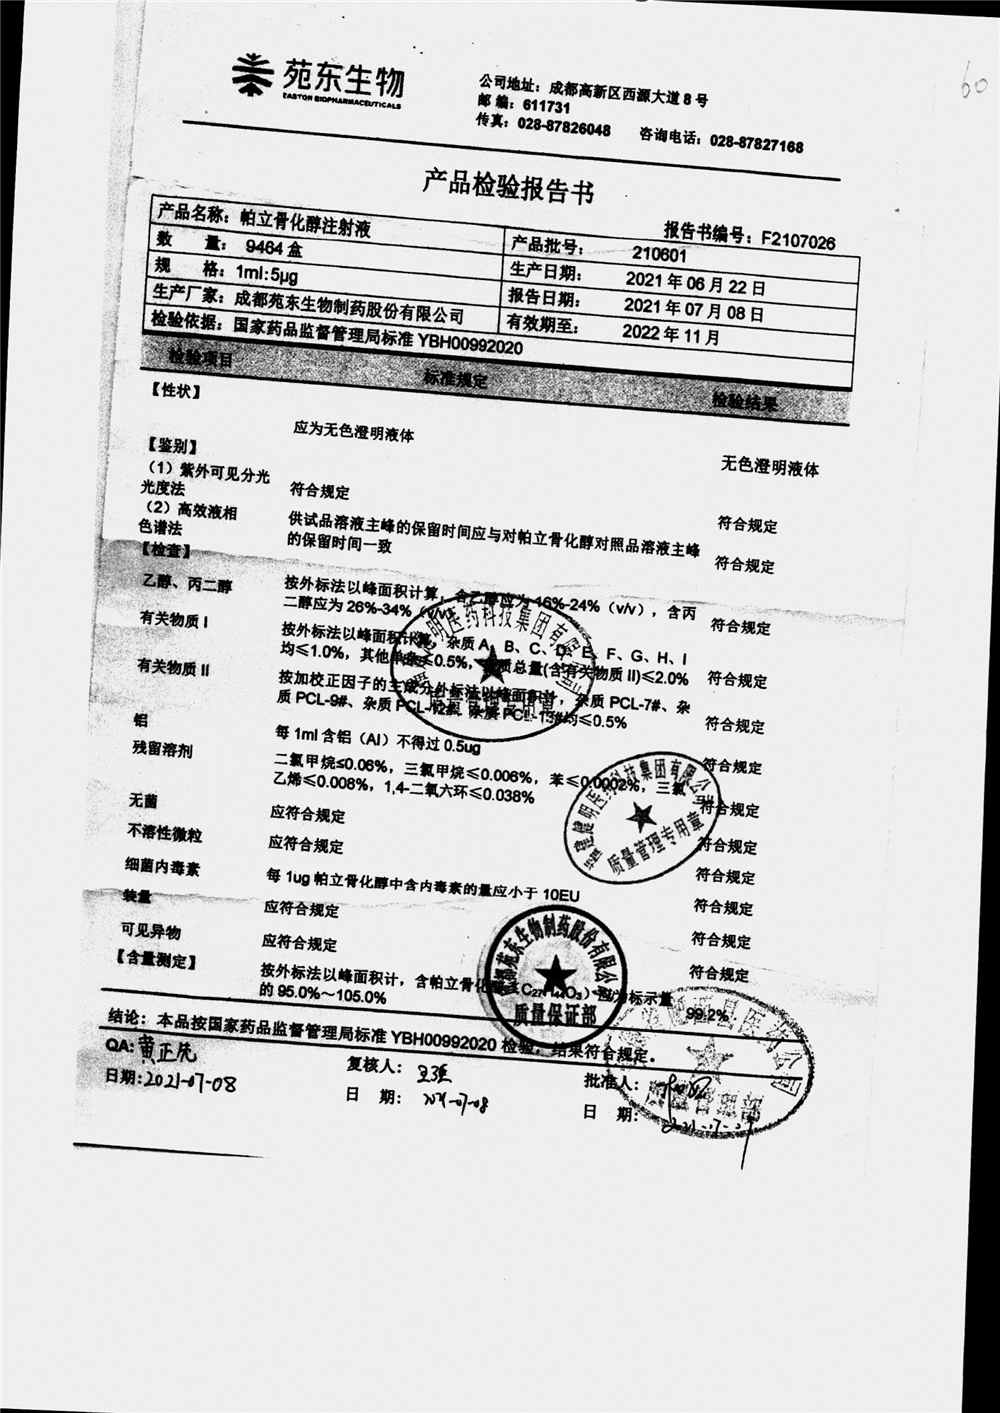 60
苑东生物
EASTON BIOPHARMACEUTICALS
公司地址：成都高新区西源大道8号
邮 编：611731
传真：028-87826048 咨询电话：028-87827168
产品检验报告书
报告书编号：F2107026
产品名称：帕立骨化醇注射液 产品批号：210601
数 量：9464盒 生产日期：2021年06月22日
规 格：1ml:5μg 报告日期：2021年07月08日
生产厂家：成都苑东生物制药股份有限公司 有效期至：2022年11月
检验依据：国家药品监督管理局标准 YBH00992020
检验项目 标准规定 检验结果
【性状】
应为无色澄明液体 无色澄明液体
【鉴别】
（1）紫外可见分光
光度法 符合规定 符合规定
（2）高效液相 供试品溶液主峰的保留时间应与对帕立骨化醇对照品溶液主峰
色谱法 的保留时间一致 符合规定
【检查】
乙醇、丙二醇 按外标法以峰面积计算，含乙醇应为16%-24%（v/v），含丙
二醇应为26%-34%（v/v） 符合规定
有关物质 I 按外标法以峰面积计算，杂质A、B、C、D、E、F、G、H、I
均≤1.0%，其他单杂≤0.5%，杂质总量(含有关物质 II)≤2.0% 符合规定
有关物质 II 按加校正因子的主成分外标法以峰面积计，杂质 PCL-7#、杂
质 PCL-9#、杂质 PCL-12#、杂质 PCL-13#均≤0.5% 符合规定
铝 每 1ml 含铝（Al）不得过 0.5ug 符合规定
残留溶剂 二氯甲烷≤0.06%，三氯甲烷≤0.006%，苯≤0.0002%，三氯
乙烯≤0.008%，1,4-二氧六环≤0.038% 符合规定
无菌 应符合规定 符合规定
不溶性微粒 应符合规定 符合规定
细菌内毒素 每 1ug 帕立骨化醇中含内毒素的量应小于 10EU 符合规定
装量 应符合规定 符合规定
可见异物 应符合规定 符合规定
【含量测定】 按外标法以峰面积计，含帕立骨化醇（C27H44O3）应为标示量
的 95.0%～105.0% 99.2%
结论：本品按国家药品监督管理局标准 YBH00992020 检验，结果符合规定。
QA: 黄正先 复核人： 王强 批准人：
日期:2021-07-08 日 期： 2021-07-08 日 期：
医药科技集团有限公司
质量管理专用章
健明医药科技集团有限公司
质量管理专用章
成都苑东生物制药股份有限公司
质量保证部